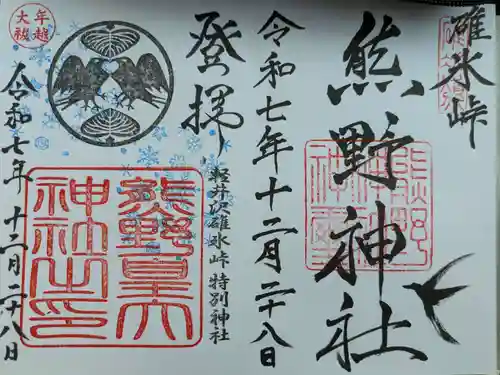 碓氷峠
熊野神社
令和七年十二月二十八日
登拝
軽井沢碓氷峠 特別神社
年越
大祓
熊野皇大
神社之印
令和七年 十二月二十八日